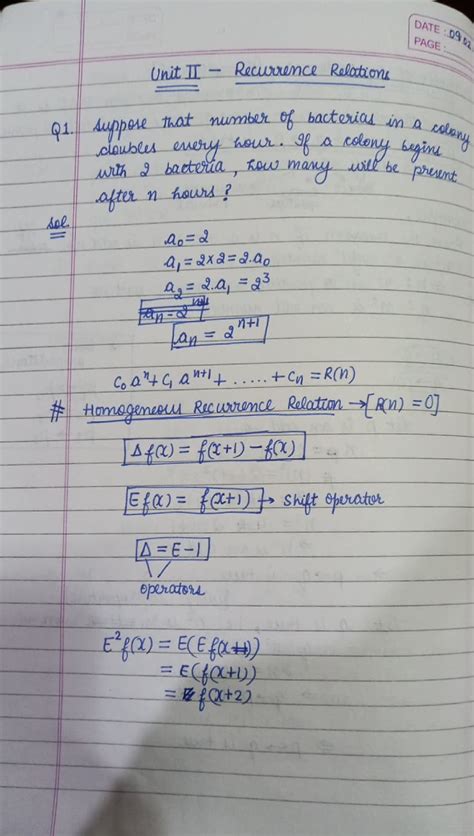 DATE: 09 02
PAGE:
Unit II - Recurrence Relations
Q1. Suppose that number of bacterias in a colony
doubles every hour. If a colony begins
with 2 bacteria, how many will be present
after n hours?
Sol.
a₀ = 2
a₁ = 2×2 = 2.a₀
a₂ = 2.a₁ = 2³
aₙ = 2ⁿ⁺¹
C₀ aⁿ + C₁ aⁿ⁺¹ + ..... + Cₙ = R(n)
# Homogeneous Recurrence Relation → [R(n) = 0]
Δf(x) = f(x+1) - f(x)
Ef(x) = f(x+1) → Shift operator
Δ = E-1
operators
E²f(x) = E(Ef(x))
= E(f(x+1))
= f(x+2)